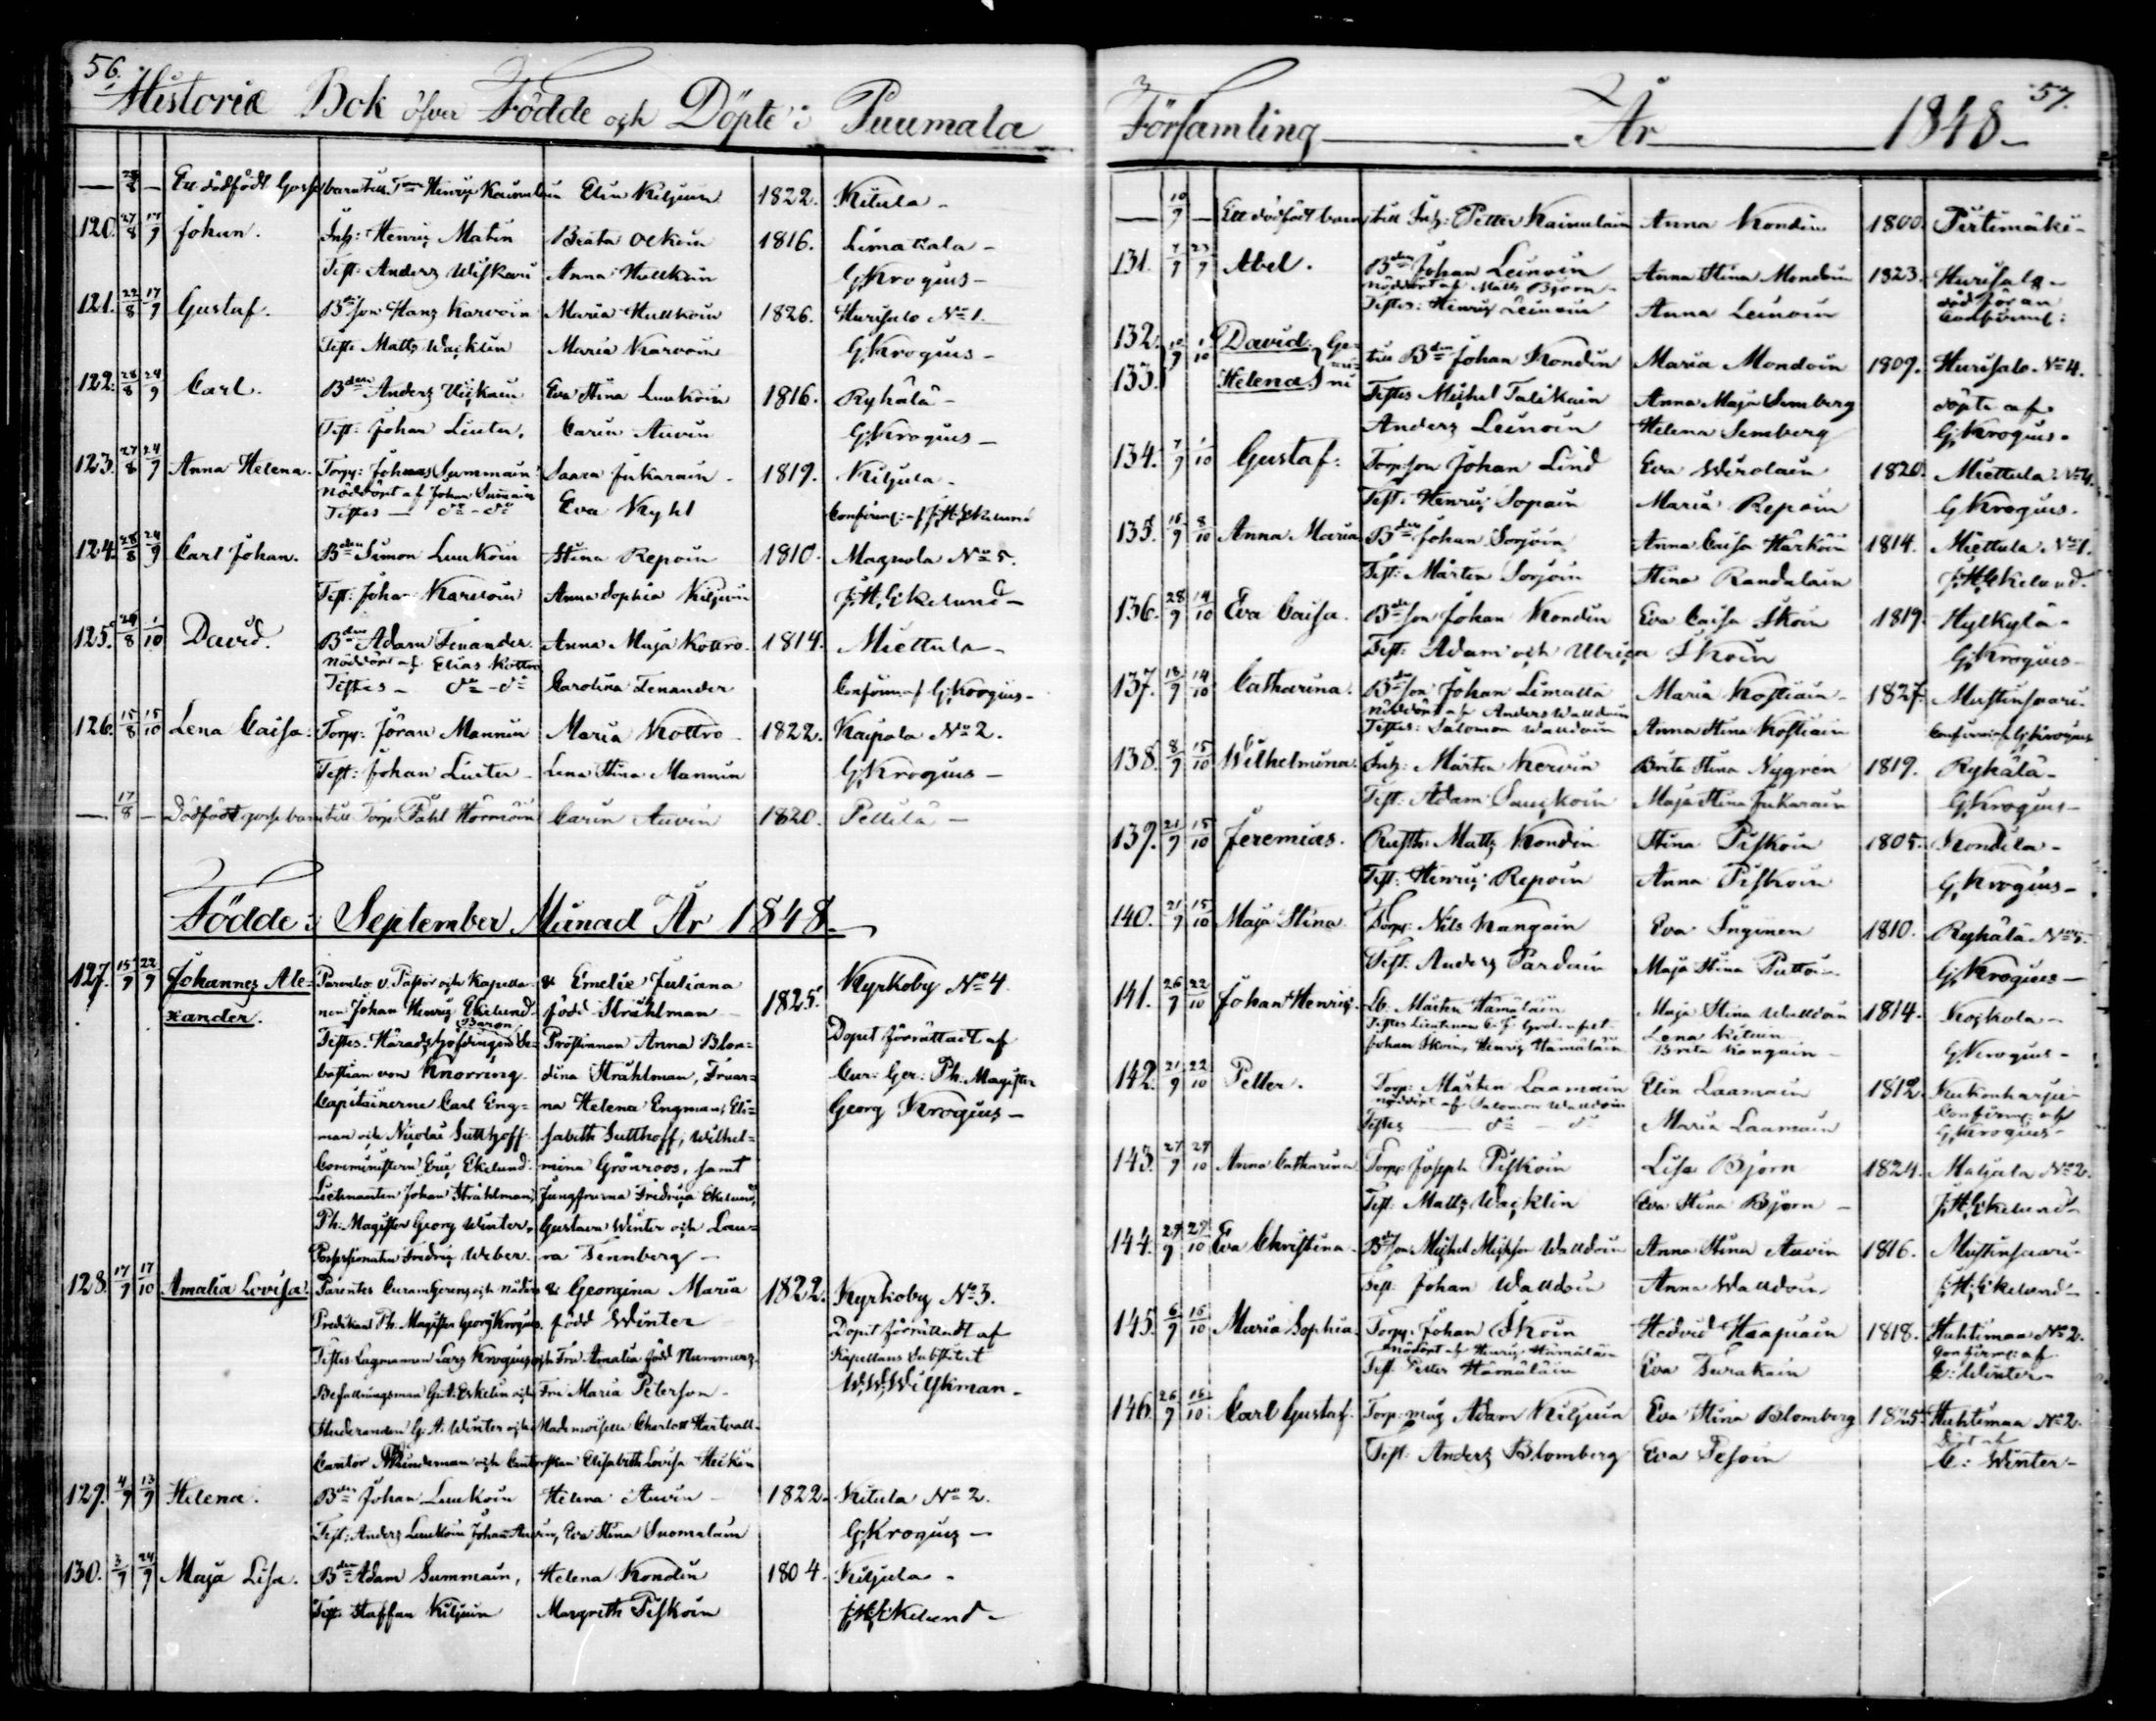 56.
Historie Bok öfver Födde och Döpte i Puumala
— 28/8 — Ett dödfödt Gossebarn till Henric Elin Kiljuin 1822. Kitula -
120. 27/8 17/9 Johan. Inh: Henric Matin Beata 1816. Limatala -
Test: Anders Anna Hulkoin G. Krogius -
121. 22/8 17/9 Gustaf. Bdeson Hans Karvoin Maria Hulkoin 1826. Hurisalo No 1.
Test: Matts Wacklin Maria Karvoin G. Krogius -
122. 28/8 24/9 Carl. Bden Anders Eva Stina Luukoin 1816. Ryhälä -
Test: Johan Linter, Carin Auvin G. Krogius -
123. 27/8 24/9 Anna Helena. Torp: Johnas Summain Saara Jukarain - 1819. Kiljula -
Nöddöpt af Johan Sumain
Testes — do - do Eva Kyhl Confirm: af J. H. Ekelund
124. 28/8 24/9 Carl Johan. Bden Simon Luukoin Stina Repoin 1810. Magnola No 5.
Test: Johan Karvoin Anna Sophia Kiljuin J. H. Ekelund -
125. 29/8 1/10 David. Bden Adam Tenander. Anna Maja Kottro. 1814. Miettula -
Nöddöpt af Elias Kottro
Testes - do - do Carolina Tenander Confirm: af G. Krogius -
126. 15/8 15/10 Lena Caisa. Torp: Jöran Mannin Maria Kottro - 1822. Kaipola No 2.
Test: Johan Linter - Lena Stina Mannin G. Krogius -
— 17/8 — Dödfödt gossebarn till Torp: Påhl Carin Auvin 1820. Pellilä -
Födde i September Månad År 1848.
127. 15/9 22/9 Johannes Ale- Parentes v. Pastor och Kapella- & Emelie Juliana 1825. Kyrkoby No 4.
xander. nen Johan Henric Ekelund. född Stråhlman -
Baron
Testes. Häradshöfdingen Se- Prostinnan Anna Blon- Dopet förrättadt af
bastian von Knorring. dina Stråhlman, Fruar- Cur: Ger: Ph. Magister
Capitainerne Carl Eng- na Helena Engman, Eli- Georg Krogius -
man och Nicolai Sutthoff. sabeth Sutthoff, Wilhel-
Comministern Eric Ekelund. mina Grönroos, samt
Lieutnanten Johan Stråhlman, Jungfruna Fredrica Ekelund,
Ph: Magister Georg Winter, Gustava Winter och Lau-
Possessionaten Fredric Weber. ra Tennberg -
128. 17/9 17/10 Amalia Lovisa. Parentes Curam Gerens och nåders & Georgina Maria 1822. Kyrkoby No 3.
Predikant Ph. Magister Georg Krogius. född Winter Dopet förrättadt af
Testes Lagmannen Lars Krogius och Fru Amalia född Nummers. Kapellans Substitut
Befallningsman G. A. Eskelin och Fru Maria Peterson - W. W. Wilskman -
Studeranden G. A. Winter och Mademoiselle Charlott Hartvall.
Cantor och Cantorskan Elisabeth Lovisa
129. 4/9 13/9 Helena. Bden Johan Luukoin Helena Auvin - 1822. Kitula No 2.
Test: Anders Luukoin Johan Auvin, Eva Stina Suomalain G. Krogius -
130. 3/9 24/9 Maja Lisa. Bden Adam Summain, Helena Kondin 1804. Kiljula -
Test. Staffan Kiljuin Margreth Piskoin J. H. Ekelund -
57.
Församling — År — 1848 -
— 10/9 — Ett dödfödt barn till Inh: Petter Kaimulain Anna Kondin 1800. Pirtimäki -
131. 7/9 23/9 Abel. Bden Johan Leinoin Anna Stina Mondoin 1823. Hurisalo -
nöddöpt af Matts Björn -
Testes: Henric Leinoin Anna Leinoin död före Confirmat:
132. 10/9 1/10 David. Ge- till Bden Johan Kondin Maria Mondoin 1809. Hurisalo No 4.
133. Helena. ni Testes Michel Talikain Anna Maja Semberg döpte af
Anders Leinoin Helena Semberg G. Krogius -
134. 7/9 1/10 Gustaf. Torpson Johan Lind Eva Wirolain 1820. Miettula No 4.
Test: Henric Sopain Maria Repoin G. Krogius.
135. 16/9 8/10 Anna Maria Bden Johan Sorjoin Anna Caisa Härköin 1814. Miettula No 1.
Test: Mårten Sorjoin Stina Randalain J. H. Ekelund.
136. 28/9 14/10 Eva Caisa. Bdeson Johan Kondin Eva Caisa Ikoin 1819. Hylkylä -
Test: Adam och Ulrica Ikoin G. Krogius -
137. 18/9 14/10 Catharina. Bdeson Johan Limatta Maria Kostiain - 1827. Mustinsaari.
Nöddöpt af Anders Walldoin
Testes: Salomon Walldoin Anna Stina Kostiain Confirm: af G. Krogius
138. 8/9 15/10 Wilhelmina. Inh: Mårten Kervin Brita Stina Nygrén 1819. Ryhälä -
Test: Adam Maja Stina Jukarain G. Krogius -
139. 21/9 15/10 Jeremias. Rusth: Matts Kondin Stina Piskoin 1805. Kondila -
Test: Henric Repoin Anna Piskoin G. Krogius -
140. 21/9 15/10 Maja Stina Torp: Nils Kangain Eva Inginen 1810. Ryhälä No 5.
Test. Anders Pardain Maja Stina G. Krogius -
141. 26/9 22/10 Johan Henric. Lb. Mårten Hämäläin Maja Stina Walldoin 1814. Koskola -
Testes Lieutnan
Johan Ikoin, Henric Hämäläin Brita Kangain - G. Krogius -
142. 21/9 22/10 Petter. Torp: Mårten Laamain Elin Laamain 1812.
nöddöpt af Salomon Walldoin Confirm: af
Testes — do — do Maria Laamain G. Krogius -
143. 27/9 29/10 Anna Catharina Torp: Joseph Piskoin Lisa Björn 1824. Matjala No 2.
Test: Matts Wacklin Eva Stina Björn - J. H. Ekelund -
144. 29/9 29/10 Eva Christina. Bdeson Michel Michson Walldoin Anna Stina Auvin 1816. Mustinsaari -
Test: Johan Walldoin Anna Walldoin J. H. Ekelund -
145. 6/9 16/10 Maria Sophia Torp: Johan Ikoin Hedvid Haapiain 1818. Huhtimaa No 2.
nöddöpt af Henric Hämäläin Confirm: af
Test. Petter Hämäläin Eva Turakain C: Winter -
146. 26/9 16/10 Carl Gustaf. Torp: måg Adam Kiljuin Eva Stina Blomberg 1825. Huhtimaa No 2.
Döpt af
Test: Anders Blomberg Eva Pesoin C: Winter -